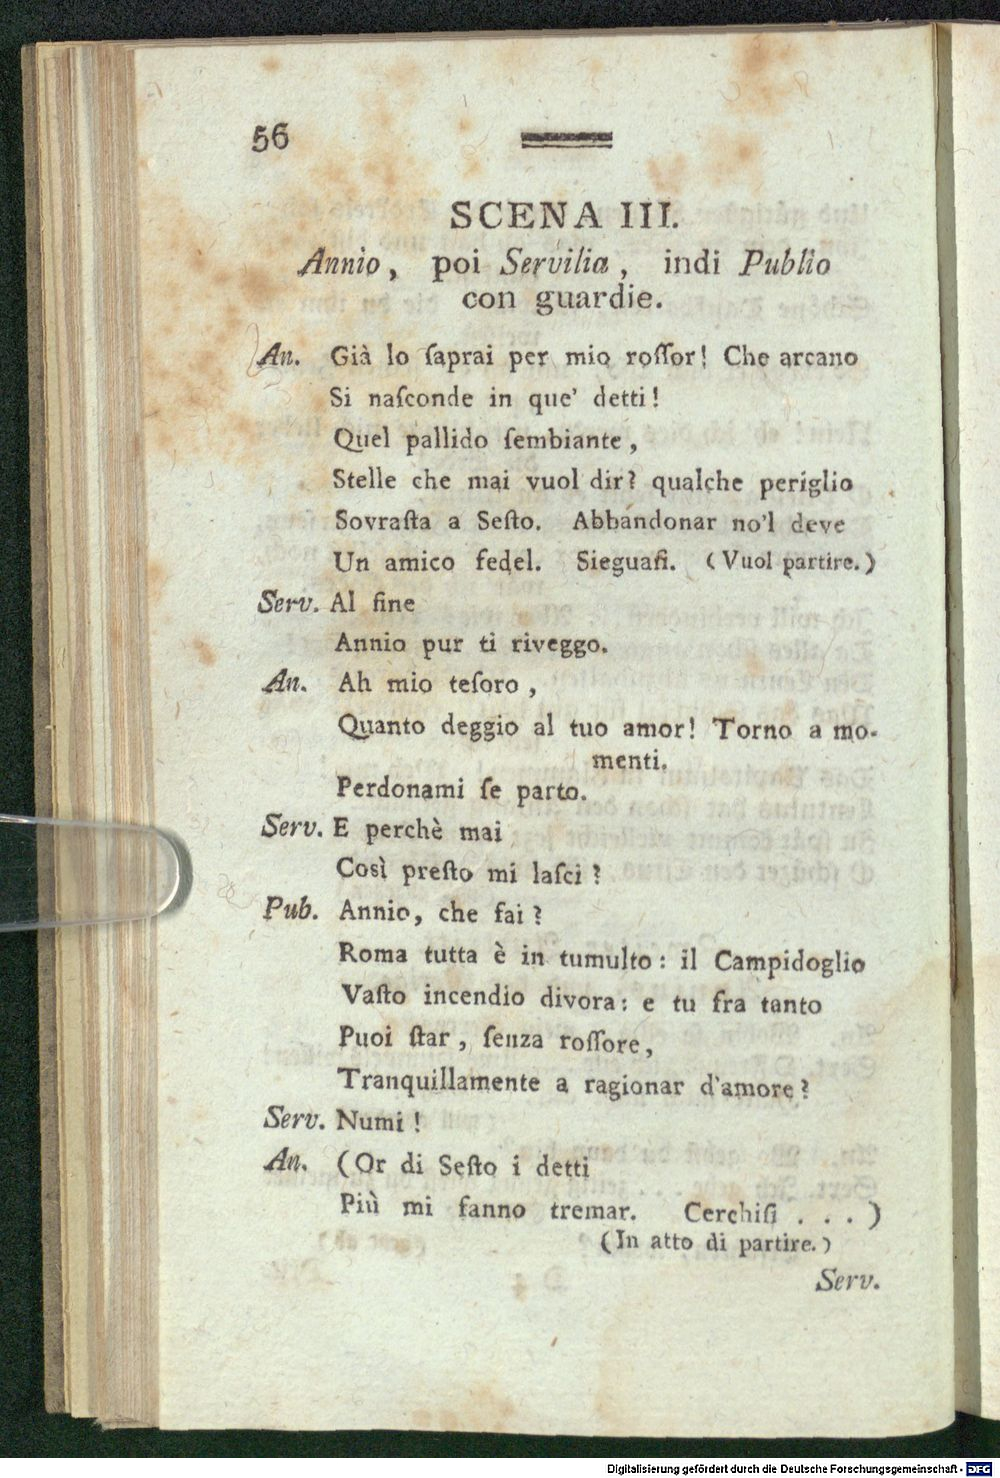 56
SCENA III.
Annio, poi Servilia, indi Publio
con guardie.
An. Già lo ſaprai per mio roſſor! Che arcano
Si naſconde in que' detti!
Quel pallido ſembiante,
Stelle che mai vuol dir? qualche periglio
Sovraſta a Seſto. Abbandonar no'l deve
Un amico fedel. Sieguaſi. (Vuol partire.)
Serv. Al fine
Annio pur ti riveggo.
An. Ah mio teſoro,
Quanto deggio al tuo amor! Torno a mo-
menti.
Perdonami ſe parto.
Serv. E perchè mai
Così preſto mi laſci?
Pub. Annio, che fai?
Roma tutta è in tumulto: il Campidoglio
Vaſto incendio divora: e tu fra tanto
Puoi ſtar, ſenza roſſore,
Tranquillamente a ragionar d'amore?
Serv. Numi!
An. (Or di Seſto i detti
Più mi fanno tremar. Cerchiſi . . . )
(In atto di partire.)
Serv.
Digitalisierung gefördert durch die Deutsche Forschungsgemeinschaft - DFG